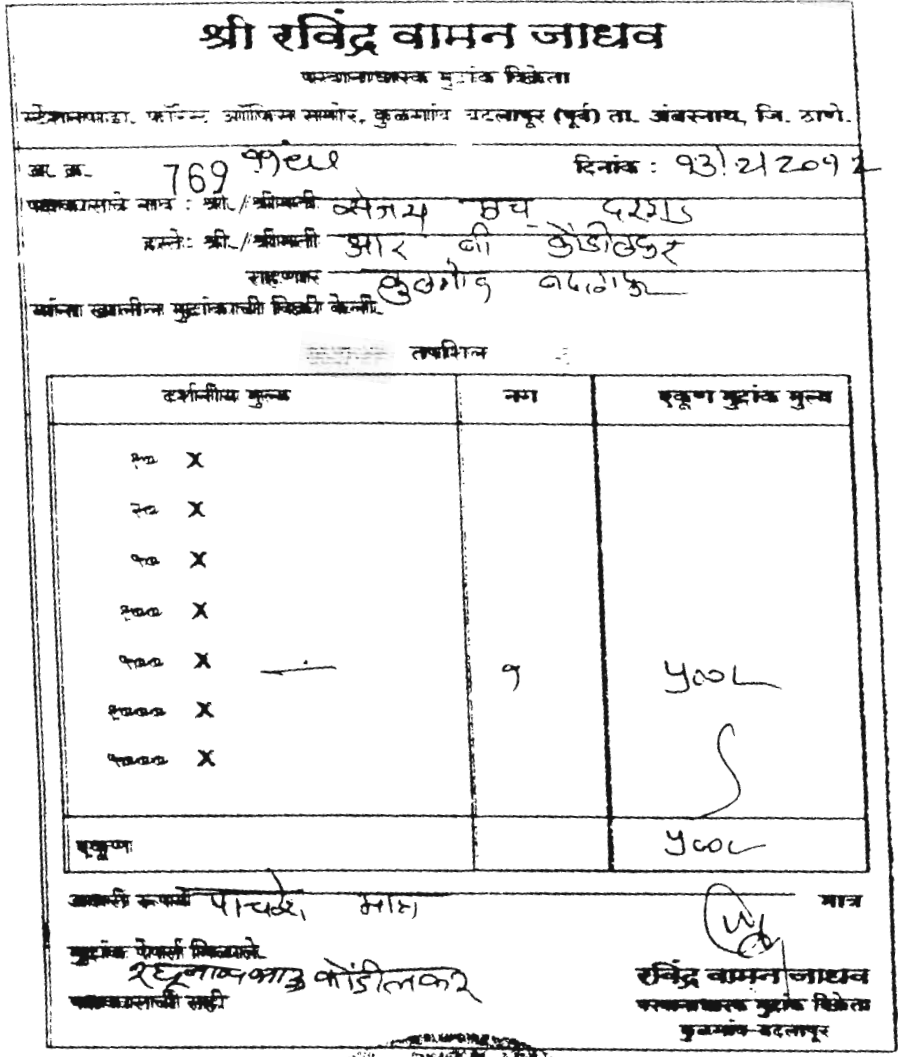 श्री रविंद्र वामन जाधव
परवानाधारक मुद्रांक विक्रेता
स्टेशनपाडा, फॉरेस्ट ऑफिस समोर, कुळगांव बदलापूर (पूर्व) ता. अंबरनाथ, जि. ठाणे.
अ. क्र. 769 दिनांक : १३/२/२०१२
पक्षकाराचे नाव : श्री./श्रीमती
हस्ते: श्री./श्रीमती आर बी कोंडीलकर
राहणार कुळगांव बदलापूर
यांना खालील मुद्रांकाची विक्री केली.
तपशिल
दर्शनीय मुल्य नग एकूण मुद्रांक मुल्य
X
X
X
X
५०० X १ ५००/-
X
X
एकूण ५००/-
अक्षरी रूपये पाचशे मात्र मात्र
मुद्रांक पेपर्स मिळाले.
कोंडीलकर
पक्षकाराची सही
रविंद्र वामन जाधव
परवानाधारक मुद्रांक विक्रेता
कुळगांव-बदलापूर